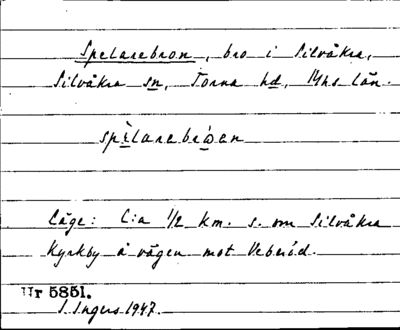 Spelarebron, bro i Silvåkra,
Silvåkra sn, Torna hd, Mhs län.
spèlarebrówen
Läge: C:a 1/2 km. s. om Silvåkra
kyrkby å vägen mot Veberöd.
Ur 5851.
I. Ingers 1947.